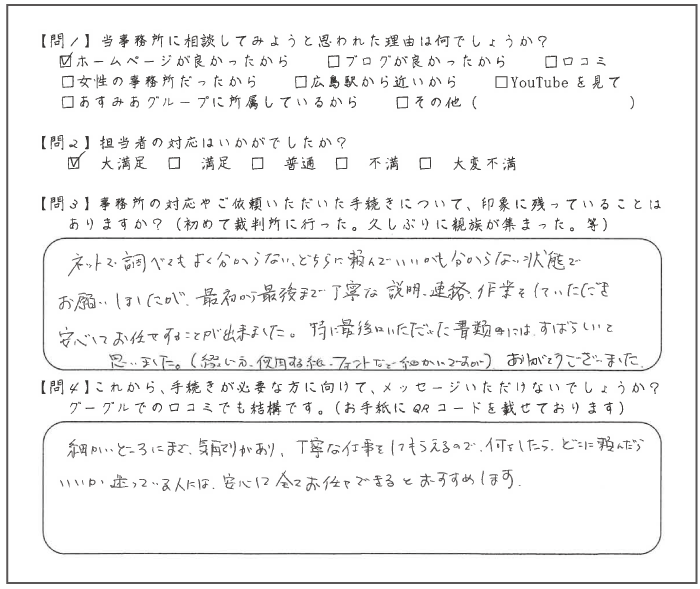 【問1】当事務所に相談してみようと思われた理由は何でしょうか?
☑ホームページが良かったから □ブログが良かったから □口コミ
□女性の事務所だったから □広島駅から近いから □YouTubeを見て
□あすみあグループに所属しているから □その他( )
【問2】担当者の対応はいかがでしたか?
☑ 大満足 □ 満足 □ 普通 □ 不満 □ 大変不満
【問3】事務所の対応やご依頼いただいた手続きについて、印象に残っていることは
ありますか?(初めて裁判所に行った。久しぶりに親族が集まった。等)
ネットで調べてもよく分からない、どちらに頼んでいいかも分からない状態で
お願いしましたが、最初から最後まで丁寧な説明、連絡、作業をしていただき
安心してお任せすることが出来ました。特に最後にいただいた書類にはすばらしいと
思いました。(綴じ方、使用する紙、フォントなど細かいですが)ありがとうございました。
【問4】これから、手続きが必要な方に向けて、メッセージいただけないでしょうか?
グーグルでの口コミでも結構です。(お手紙にQRコードを載せております)
細かいところにまで、気配りがあり、丁寧な仕事をしてもらえるので、何をしたら、どこに頼んだら
いいか迷っている人には、安心して全てお任せできるとおすすめします。